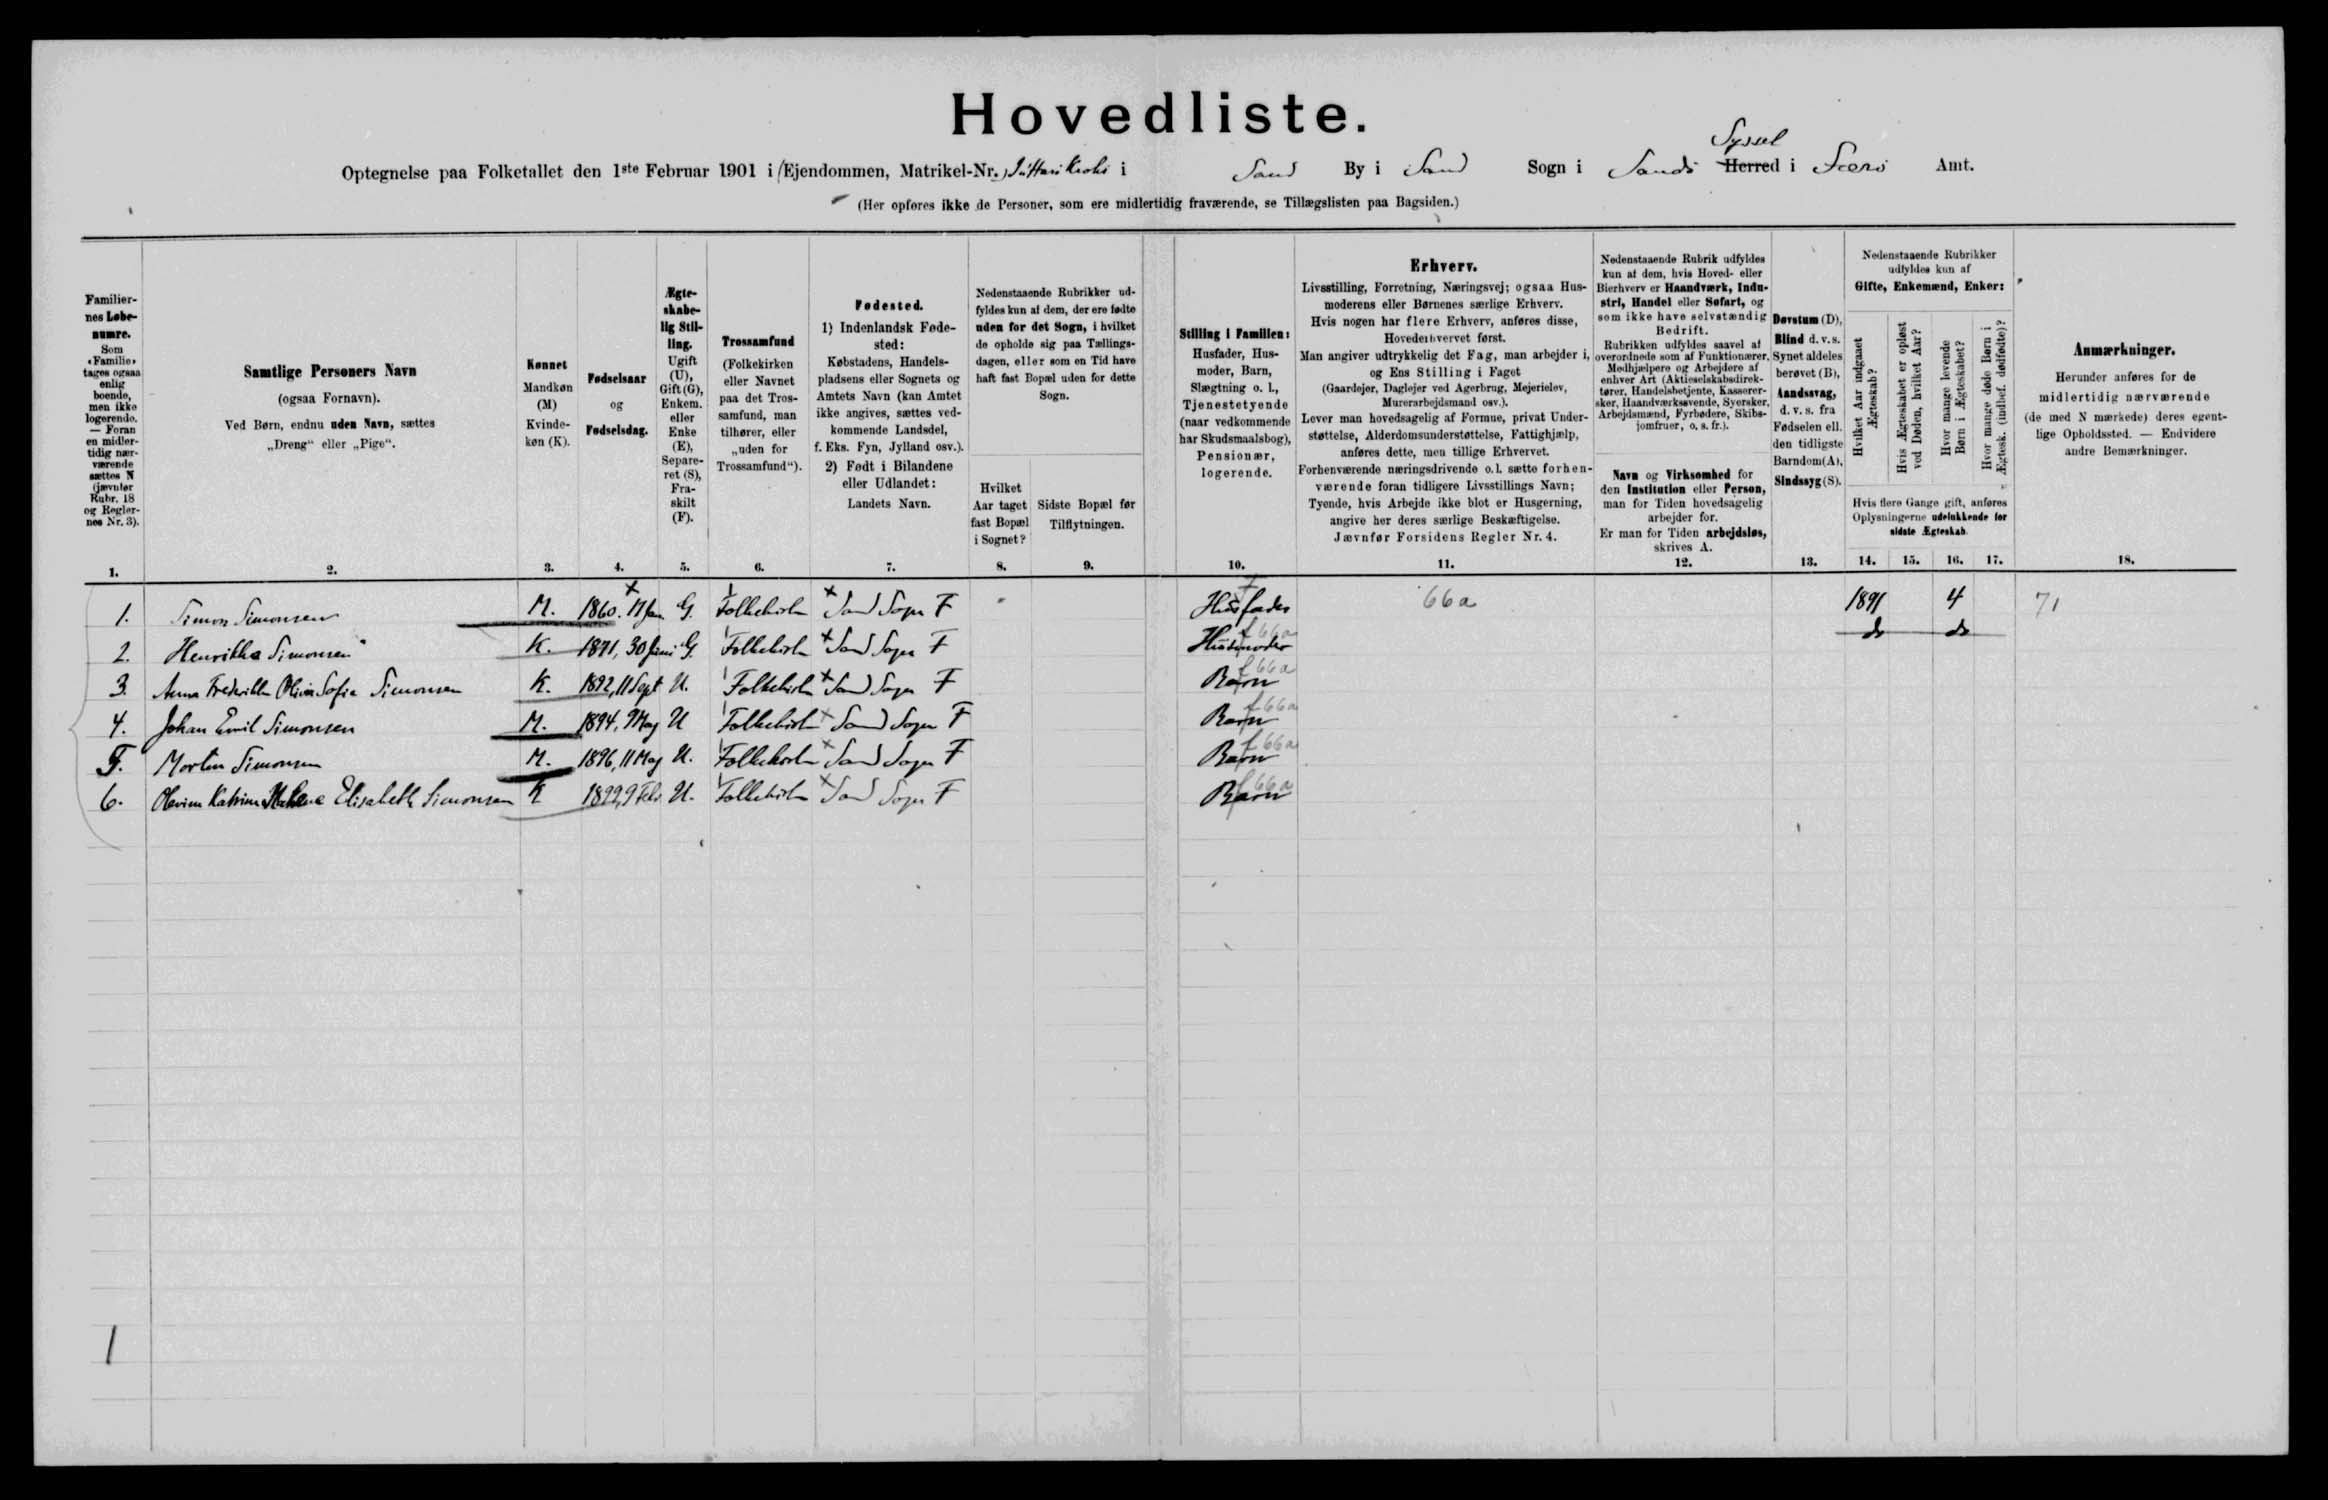 Hovedliste.
Optegnelse paa Folketallet den 1ste Februar 1901 i (Ejendommen, Matrikel-Nr.) i Sand By i Sand Sogn i Sandø Syssel Herred i Færø Amt.
(Her opføres ikke de Personer, som ere midlertidig fraværende, se Tillægslisten paa Bagsiden.)
Familier-
nes Løbe-
numre.
Som
«Familie»
tages ogsaa
enlig
boende,
men ikke
logerende.
— Foran
en midler-
tidig nær-
værende
sættes N
(jævnfør
Rubr. 18
og Regler-
nes Nr. 3).
1.
Samtlige Personers Navn
(ogsaa Fornavn).
Ved Børn, endnu uden Navn, sættes
„Dreng“ eller „Pige“.
2.
Kønnet
Mandkøn
(M)
Kvinde-
køn (K).
3.
Fødselsaar
og
Fødselsdag.
4.
Ægte-
skabe-
lig Stil-
ling.
Ugift
(U),
Gift (G),
Enkem.
eller
Enke
(E),
Separe-
ret (S),
Fra-
skilt
(F).
5.
Trossamfund
(Folkekirken
eller Navnet
paa det Tros-
samfund, man
tilhører, eller
„uden for
Trossamfund“).
6.
Fødested.
1) Indenlandsk Føde-
sted:
Købstadens, Handels-
pladsens eller Sognets og
Amtets Navn (kan Amtet
ikke angives, sættes ved-
kommende Landsdel,
f. Eks. Fyn, Jylland osv.).
2) Født i Bilandene
eller Udlandet:
Landets Navn.
7.
Nedenstaaende Rubrikker ud-
fyldes kun af dem, der ere fødte
uden for det Sogn, i hvilket
de opholde sig paa Tællings-
dagen, eller som en Tid have
haft fast Bopæl uden for dette
Sogn.
Hvilket
Aar taget
fast Bopæl
i Sognet?
8.
Sidste Bopæl før
Tilflytningen.
9.
Stilling i Familien:
Husfader, Hus-
moder, Barn,
Slægtning o. l.,
Tjenestetyende
(naar vedkommende
har Skudsmaalsbog),
Pensionær,
logerende.
10.
Erhverv.
Livsstilling, Forretning, Næringsvej; ogsaa Hus-
moderens eller Børnenes særlige Erhverv.
Hvis nogen har flere Erhverv, anføres disse,
Hovederhvervet først.
Man angiver udtrykkelig det Fag, man arbejder i,
og Ens Stilling i Faget
(Gaardejer, Daglejer ved Agerbrug, Mejerielev,
Murerarbejdsmand osv.).
Lever man hovedsagelig af Formue, privat Under-
støttelse, Alderdomsunderstøttelse, Fattighjælp,
anføres dette, men tillige Erhvervet.
Forhenværende næringsdrivende o.l. sætte forhen-
værende foran tidligere Livsstillings Navn;
Tyende, hvis Arbejde ikke blot er Husgerning,
angive her deres særlige Beskæftigelse.
Jævnfør Forsidens Regler Nr. 4.
11.
Nedenstaaende Rubrik udfyldes
kun af dem, hvis Hoved- eller
Bierhverv er Haandværk, Indu-
stri, Handel eller Søfart, og
som ikke have selvstændig
Bedrift.
Rubrikken udfyldes saavel af
overordnede som af Funktionærer,
Medhjælpere og Arbejdere af
enhver Art (Aktieselskabsdirek-
tører, Handelsbetjente, Kasserer-
sker, Haandværkssvende, Syersker,
Arbejdsmænd, Fyrbødere, Skibs-
jomfruer, o. s. fr.).
Navn og Virksomhed for
den Institution eller Person,
man for Tiden hovedsagelig
arbejder for.
Er man for Tiden arbejdsløs,
skrives A.
12.
Døvstum (D),
Blind d. v. s.
Synet aldeles
berøvet (B),
Aandssvag,
d. v. s. fra
Fødselen ell.
den tidligste
Barndom (A),
Sindssyg (S).
13.
Nedenstaaende Rubrikker
udfyldes kun af
Gifte, Enkemænd, Enker:
Hvilket Aar indgaaet
Ægteskab?
Hvis Ægteskabet er opløst
ved Døden, hvilket Aar?
Hvor mange levende
Børn i Ægteskabet?
Hvor mange døde Børn i
Ægtesk. (indbef. dødfødte)?
Hvis flere Gange gift, anføres
Oplysningerne udelukkende for
sidste Ægteskab.
14. 15. 16. 17.
Anmærkninger.
Herunder anføres for de
midlertidig nærværende
(de med N mærkede) deres egent-
lige Opholdssted. — Endvidere
andre Bemærkninger.
18.
1. Simon Simonsen M. 1860. 17 Jan. G. Folkekirken Sand Sogn F Husfader 66a 1891 4 71
2. Henrikka Simonsen K. 1871, 30 Juni G. Folkekirken Sand Sogn F Husmoder f 66a do do
3. Anna Frederikke Olivia Sofie Simonsen K. 1892, 11 Sept U. Folkekirken Sand Sogn F Barn f 66a
4. Johan Emil Simonsen M. 1894, 9 Maj U Folkekirken Sand Sogn F Barn f 66a
5. Morten Simonsen M. 1896, 11 Maj U. Folkekirken Sand Sogn F Barn f 66a
6. Katrine Elisabeth Simonsen K 1899, 9 Feb. U. Folkekirken Sand Sogn F Barn f 66a
1